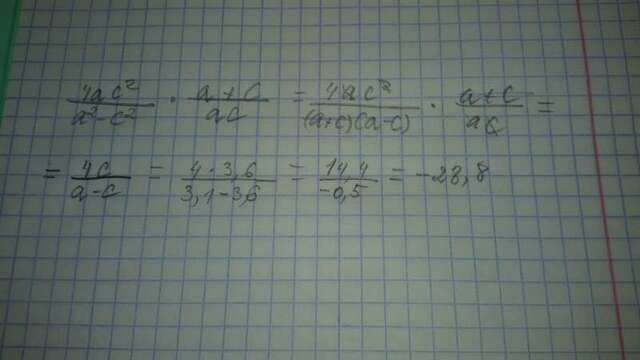 4ac²/a²-c² · a+c/ac = 4ac²/(a+c)(a-c) · a+c/ac =
= 4c/a-c = 4·3,6/3,1-3,6 = 14,4/-0,5 = -28,8